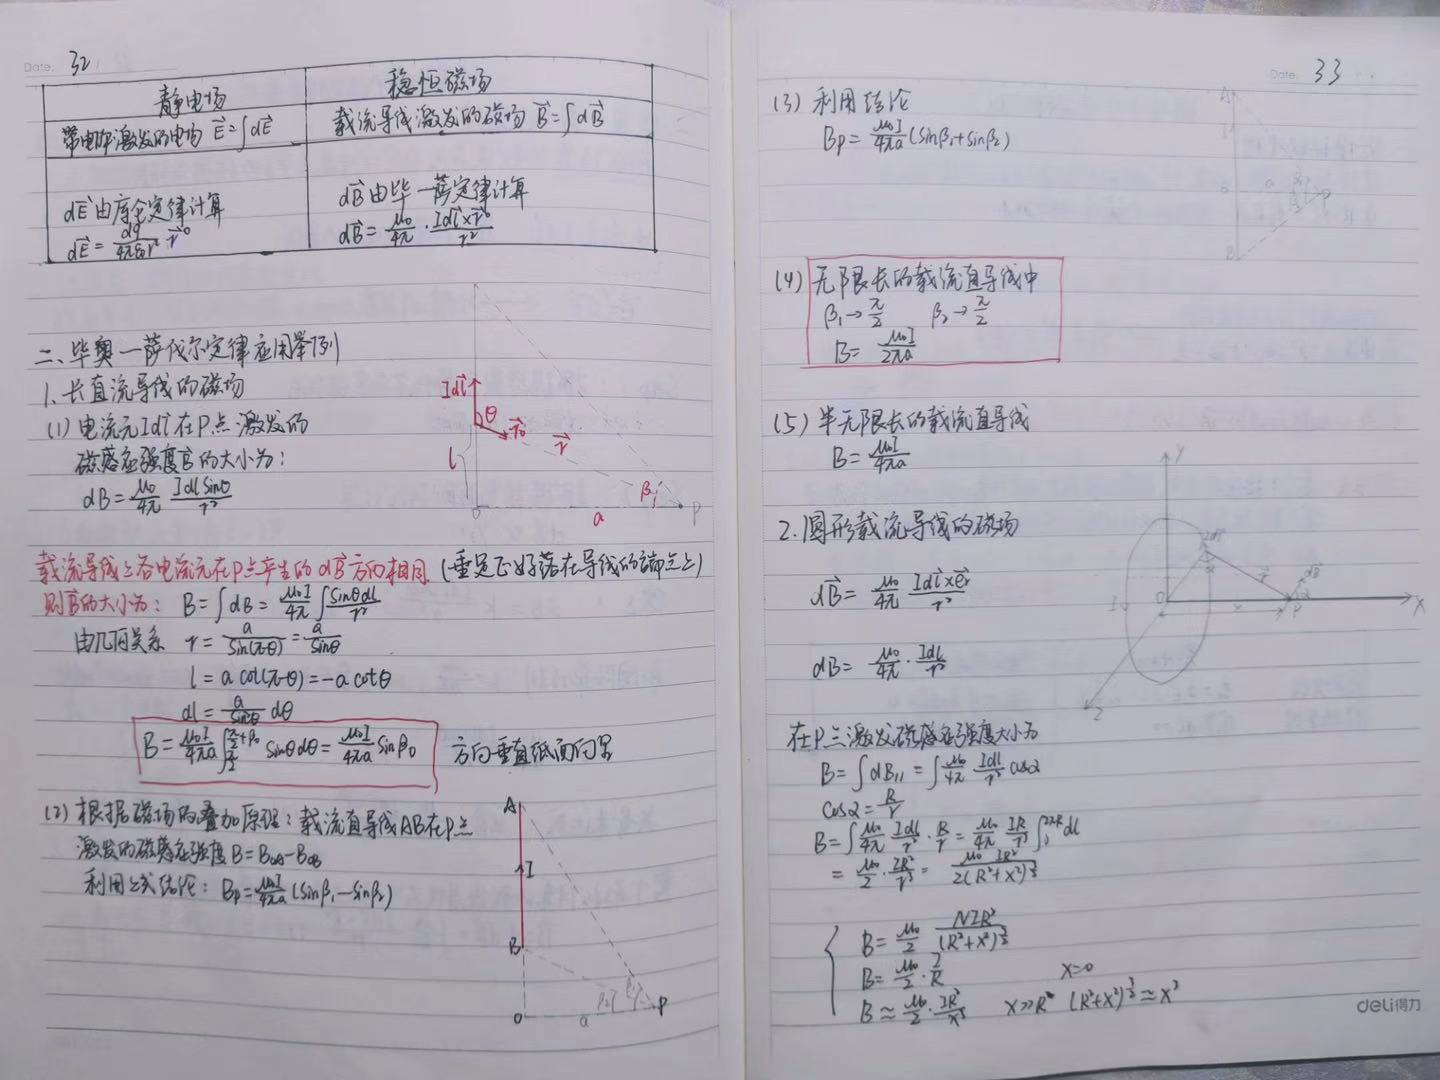 Date. 32
静电场 稳恒磁场
带电体激发的电场 E⃗=∫dE⃗ 载流导线激发的磁场 B⃗=∫dB⃗
dE⃗由库仑定律计算 dB⃗由毕—萨定律计算
dE⃗=dq/4πε₀r² · r⃗⁰ dB⃗=μ₀/4π · Idl⃗×r⃗⁰/r²
二、毕奥—萨伐尔定律应用举例
1、长直流导线的磁场
(1) 电流元Idl⃗在P点激发的
磁感应强度B⃗的大小为:
dB=μ₀/4π Idl sinθ/r²
Idl⃗
θ
r⃗₀ r⃗
l
β
o a P
载流导线上各电流元在P点产生的dB⃗方向相同 (垂足正好落在导线的端点上)
则B⃗的大小为: B=∫dB=μ₀I/4π ∫sinθdl/r²
由几何关系 r=a/sin(π-θ)=a/sinθ
l=a cot(π-θ)=-a cotθ
dl=a/sin²θ dθ
B=μ₀I/4πa ∫_{π/2}^{π/2+β₀} sinθdθ=μ₀I/4πa sinβ₀ 方向垂直纸面向里
(2) 根据磁场的叠加原理: 载流直导线AB在P点
激发的磁感应强度 B=B_{OA}-B_{OB}
利用上式结论: Bp=μ₀I/4πa (sinβ₁-sinβ₂)
A
I
B
β₂ β₁
O a P
Date. 33
(3) 利用结论
Bp=μ₀I/4πa (sinβ₁+sinβ₂)
A
I
a P
B
(4) 无限长的载流直导线中
β₁→π/2 β₂→π/2
B=μ₀I/2πa
(5) 半无限长的载流直导线
B=μ₀I/4πa
2.圆形载流导线的磁场
Y
Idl⃗
r⃗ dB⃗
I O x P X
Z
dB⃗=μ₀/4π Idl⃗×e⃗r/r²
dB=μ₀/4π · Idl/r²
在P点激发磁感应强度大小为
B=∫dB₁₁=∫μ₀/4π Idl/r² cosα
cosα=R/r
B=∫μ₀/4π Idl/r² · R/r=μ₀/4π IR/r³ ∫₀^{2πR} dl
=μ₀/2 · IR²/r³=μ₀IR²/2(R²+x²)^{3/2}
B=μ₀/2 NIR²/(R²+x²)^{3/2}
B=μ₀/2 · I/R x=0
B≈μ₀/2 · IR²/x³ x≫R (R²+x²)^{3/2}≈x³
deli得力